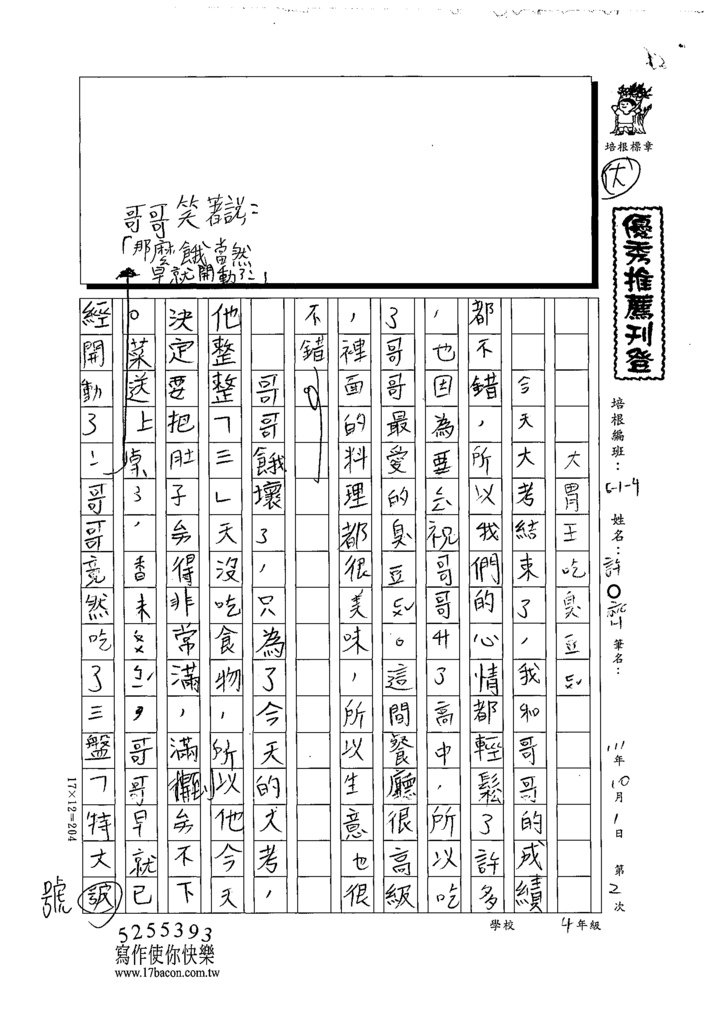 培根標章
優
優秀推薦刊登
培根編班：G-1-4 姓名：許○ 筆名：
111年10月1日 第2次
大胃王吃臭豆ㄈㄨˇ
今天大考結束了，我和哥哥的成績
都不錯，所以我們的心情都輕鬆了許多
，也因為要去祝哥哥升了高中，所以吃
了哥哥最愛的臭豆ㄈㄨˇ。這間餐廳很高級
，裡面的料理都很美味，所以生意也很
不錯。
哥哥餓壞了，只為了今天的大考，
他整整「三」天沒吃食物，所以他今天
決定要把肚子弄得非常滿，滿到弄不下
。菜送上桌了，香味，哥哥早就已
經開動了！哥哥竟然吃了三盤「特大
號
哥哥笑著說：
「那麼餓當然
早就開動了！」
17×12=204
學校 4年級
5255393
寫作使你快樂
www.17bacon.com.tw